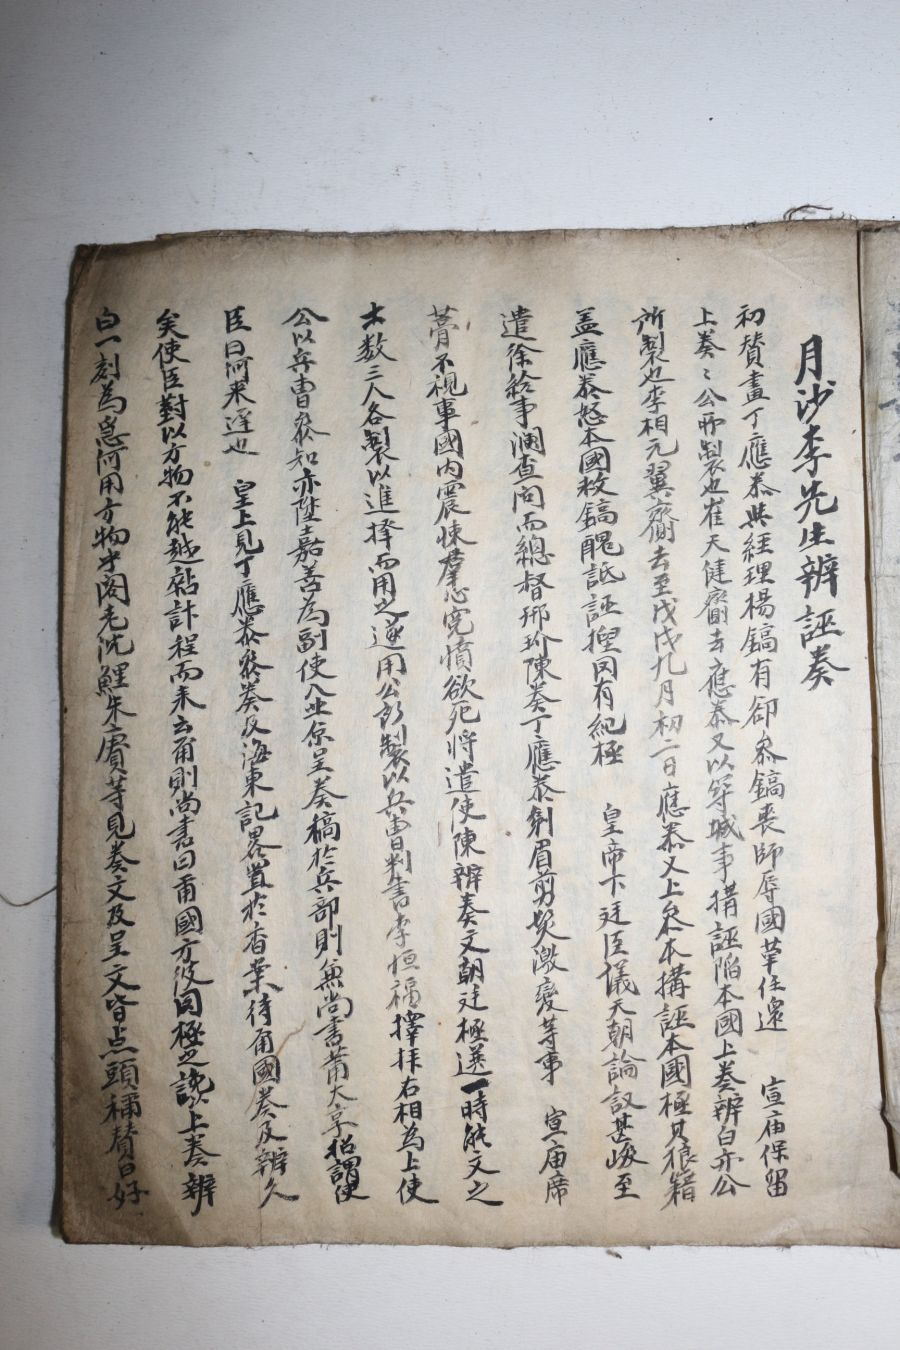 月沙李先生辨誣奏
初贊畫丁應泰與經理楊鎬有郤叅鎬喪師辱國革任還 宣庙保留
上奏〻公所製也崔天健齎去應泰又以築城事搆誣陷本國上奏辨白亦公
所製也李相元翼齎去至戊戌九月初二日應泰又上叅本搆誣本國極其狼籍
盖應泰怒本國救鎬醜詆誣捏罔有紀極 皇帝下廷臣議天朝論設甚峻至
遣徐給事 查问而總督邢玠陳奏丁應泰 眉剪髮激變等事 宣庙席
藁不視事國內震悚羣心寃憤欲死將遣使陳辨奏文朝廷極選一時能文之
士数三人各製以進择而用之遂用公所製以兵曹判書李恒福擢拜右相為上使
公以兵曹叅知亦陞嘉善為副使入北京呈奏稿於兵部則兼尚書蕭大亨招謂使
臣曰何来遅也 皇上見丁應泰叅奏及海東記畧置於香案待甭國奏及辨久
矣使臣對以方物不能越站計程而来云甭則尚書曰甭國方被罔極之讒上奏辨
白一刻為急何用方物乎閣老沈鯉朱賡等見奏文及呈文皆点頭稱贊曰好